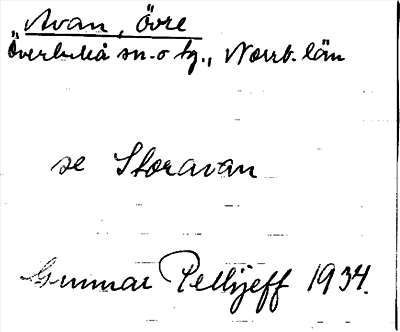 „Avan, Övre
Överluleå sn. o tg., Norrb. län
se Storavan
Gunnar Pellijeff 1934.